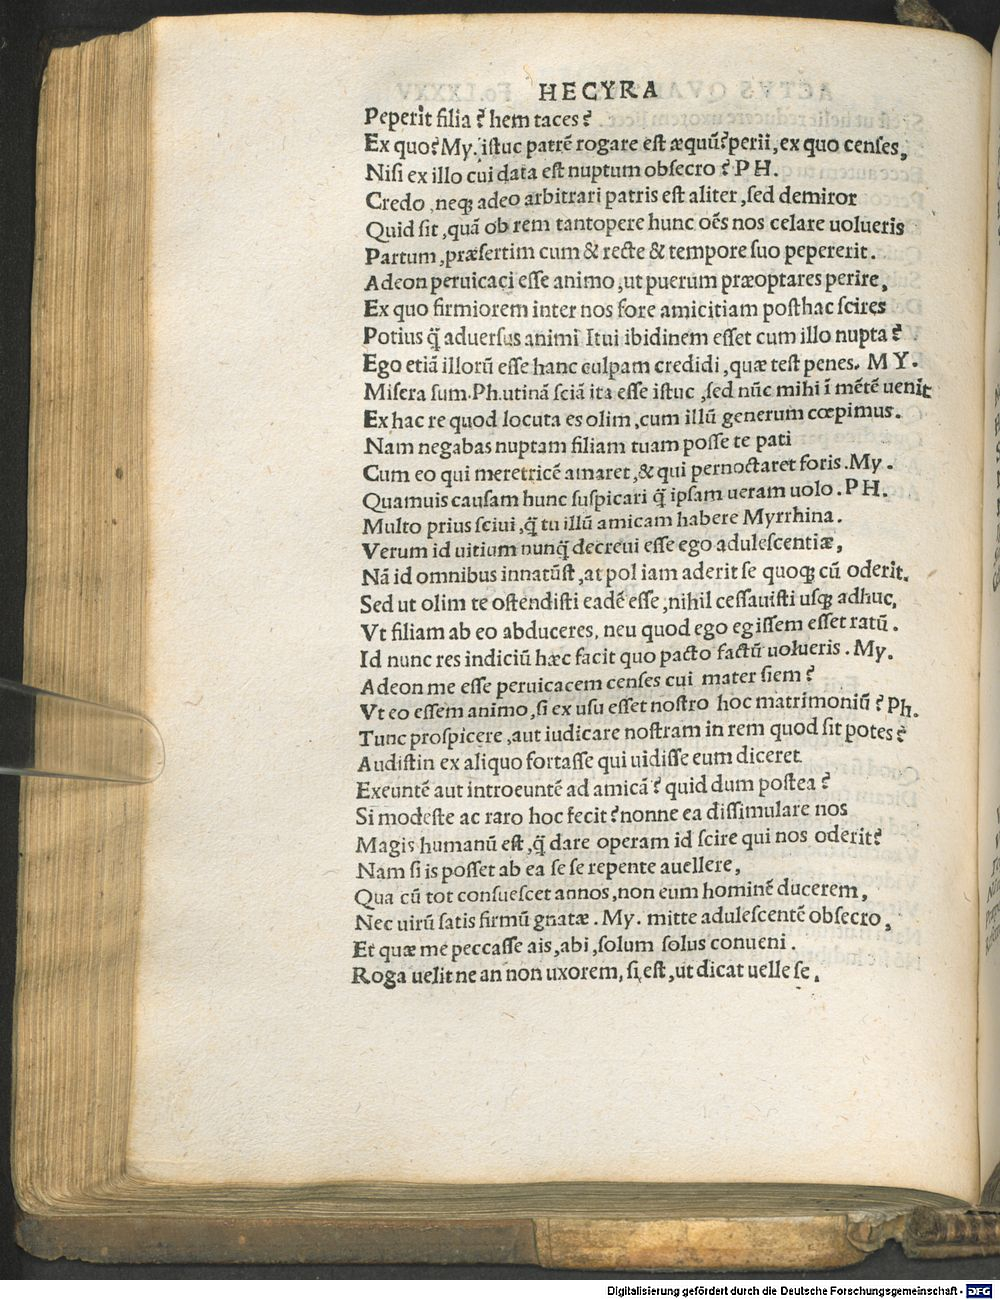 HECYRA
Peperit filia? hem taces?
Ex quo? My. istuc patrē rogare est æquū? perii, ex quo censes,
Nisi ex illo cui data est nuptum obsecro? PH.
Credo, neqꝫ adeo arbitrari patris est aliter, sed demiror
Quid sit, quā ob rem tantopere hunc oēs nos celare uolueris
Partum, præsertim cum & recte & tempore suo pepererit.
Adeon peruicaci esse animo, ut puerum præoptares perire,
Ex quo firmiorem inter nos fore amicitiam posthac scires
Potius q̄ aduersus animi Itui ibidinem esset cum illo nupta?
Ego etiā illorū esse hanc culpam credidi, quæ test penes. MY.
Misera sum. Ph. utinā sciā ita esse istuc, sed nūc mihi ī mētē uenit
Ex hac re quod locuta es olim, cum illū generum cœpimus.
Nam negabas nuptam filiam tuam posse te pati
Cum eo qui meretricē amaret, & qui pernoctaret foris. My.
Quamuis causam hunc suspicari q̄ ipsam ueram uolo. PH.
Multo prius sciui, q̄ tu illū amicam habere Myrrhina.
Verum id uitium nunq̄ decreui esse ego adulescentiæ,
Nā id omnibus innatūst, at pol iam aderit se quoqꝫ cū oderit.
Sed ut olim te ostendisti eadē esse, nihil cessauisti usqꝫ adhuc,
Vt filiam ab eo abduceres, neu quod ego egissem esset ratū.
Id nunc res indiciū hæc facit quo pacto factū uolueris. My.
Adeon me esse peruicacem censes cui mater siem?
Vt eo essem animo, si ex usu esset nostro hoc matrimoniū? Ph.
Tunc prospicere, aut iudicare nostram in rem quod sit potes?
Audistin ex aliquo fortasse qui uidisse eum diceret
Exeuntē aut introeuntē ad amicā? quid dum postea?
Si modeste ac raro hoc fecit? nonne ea dissimulare nos
Magis humanū est, q̄ dare operam id scire qui nos oderit?
Nam si is posset ab ea se se repente auellere,
Qua cū tot consuescet annos, non eum hominē ducerem,
Nec uirū satis firmū gnatæ. My. mitte adulescentē obsecro,
Et quæ me peccasse ais, abi, solum solus conueni.
Roga uelit ne an non uxorem, si est, ut dicat uelle se.
Digitalisierung gefördert durch die Deutsche Forschungsgemeinschaft - DFG